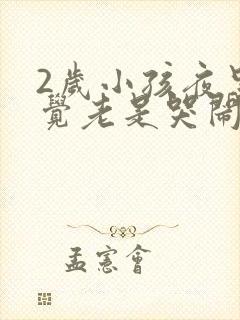 2歲小孩夜里
覺老是哭鬧
孟憲會